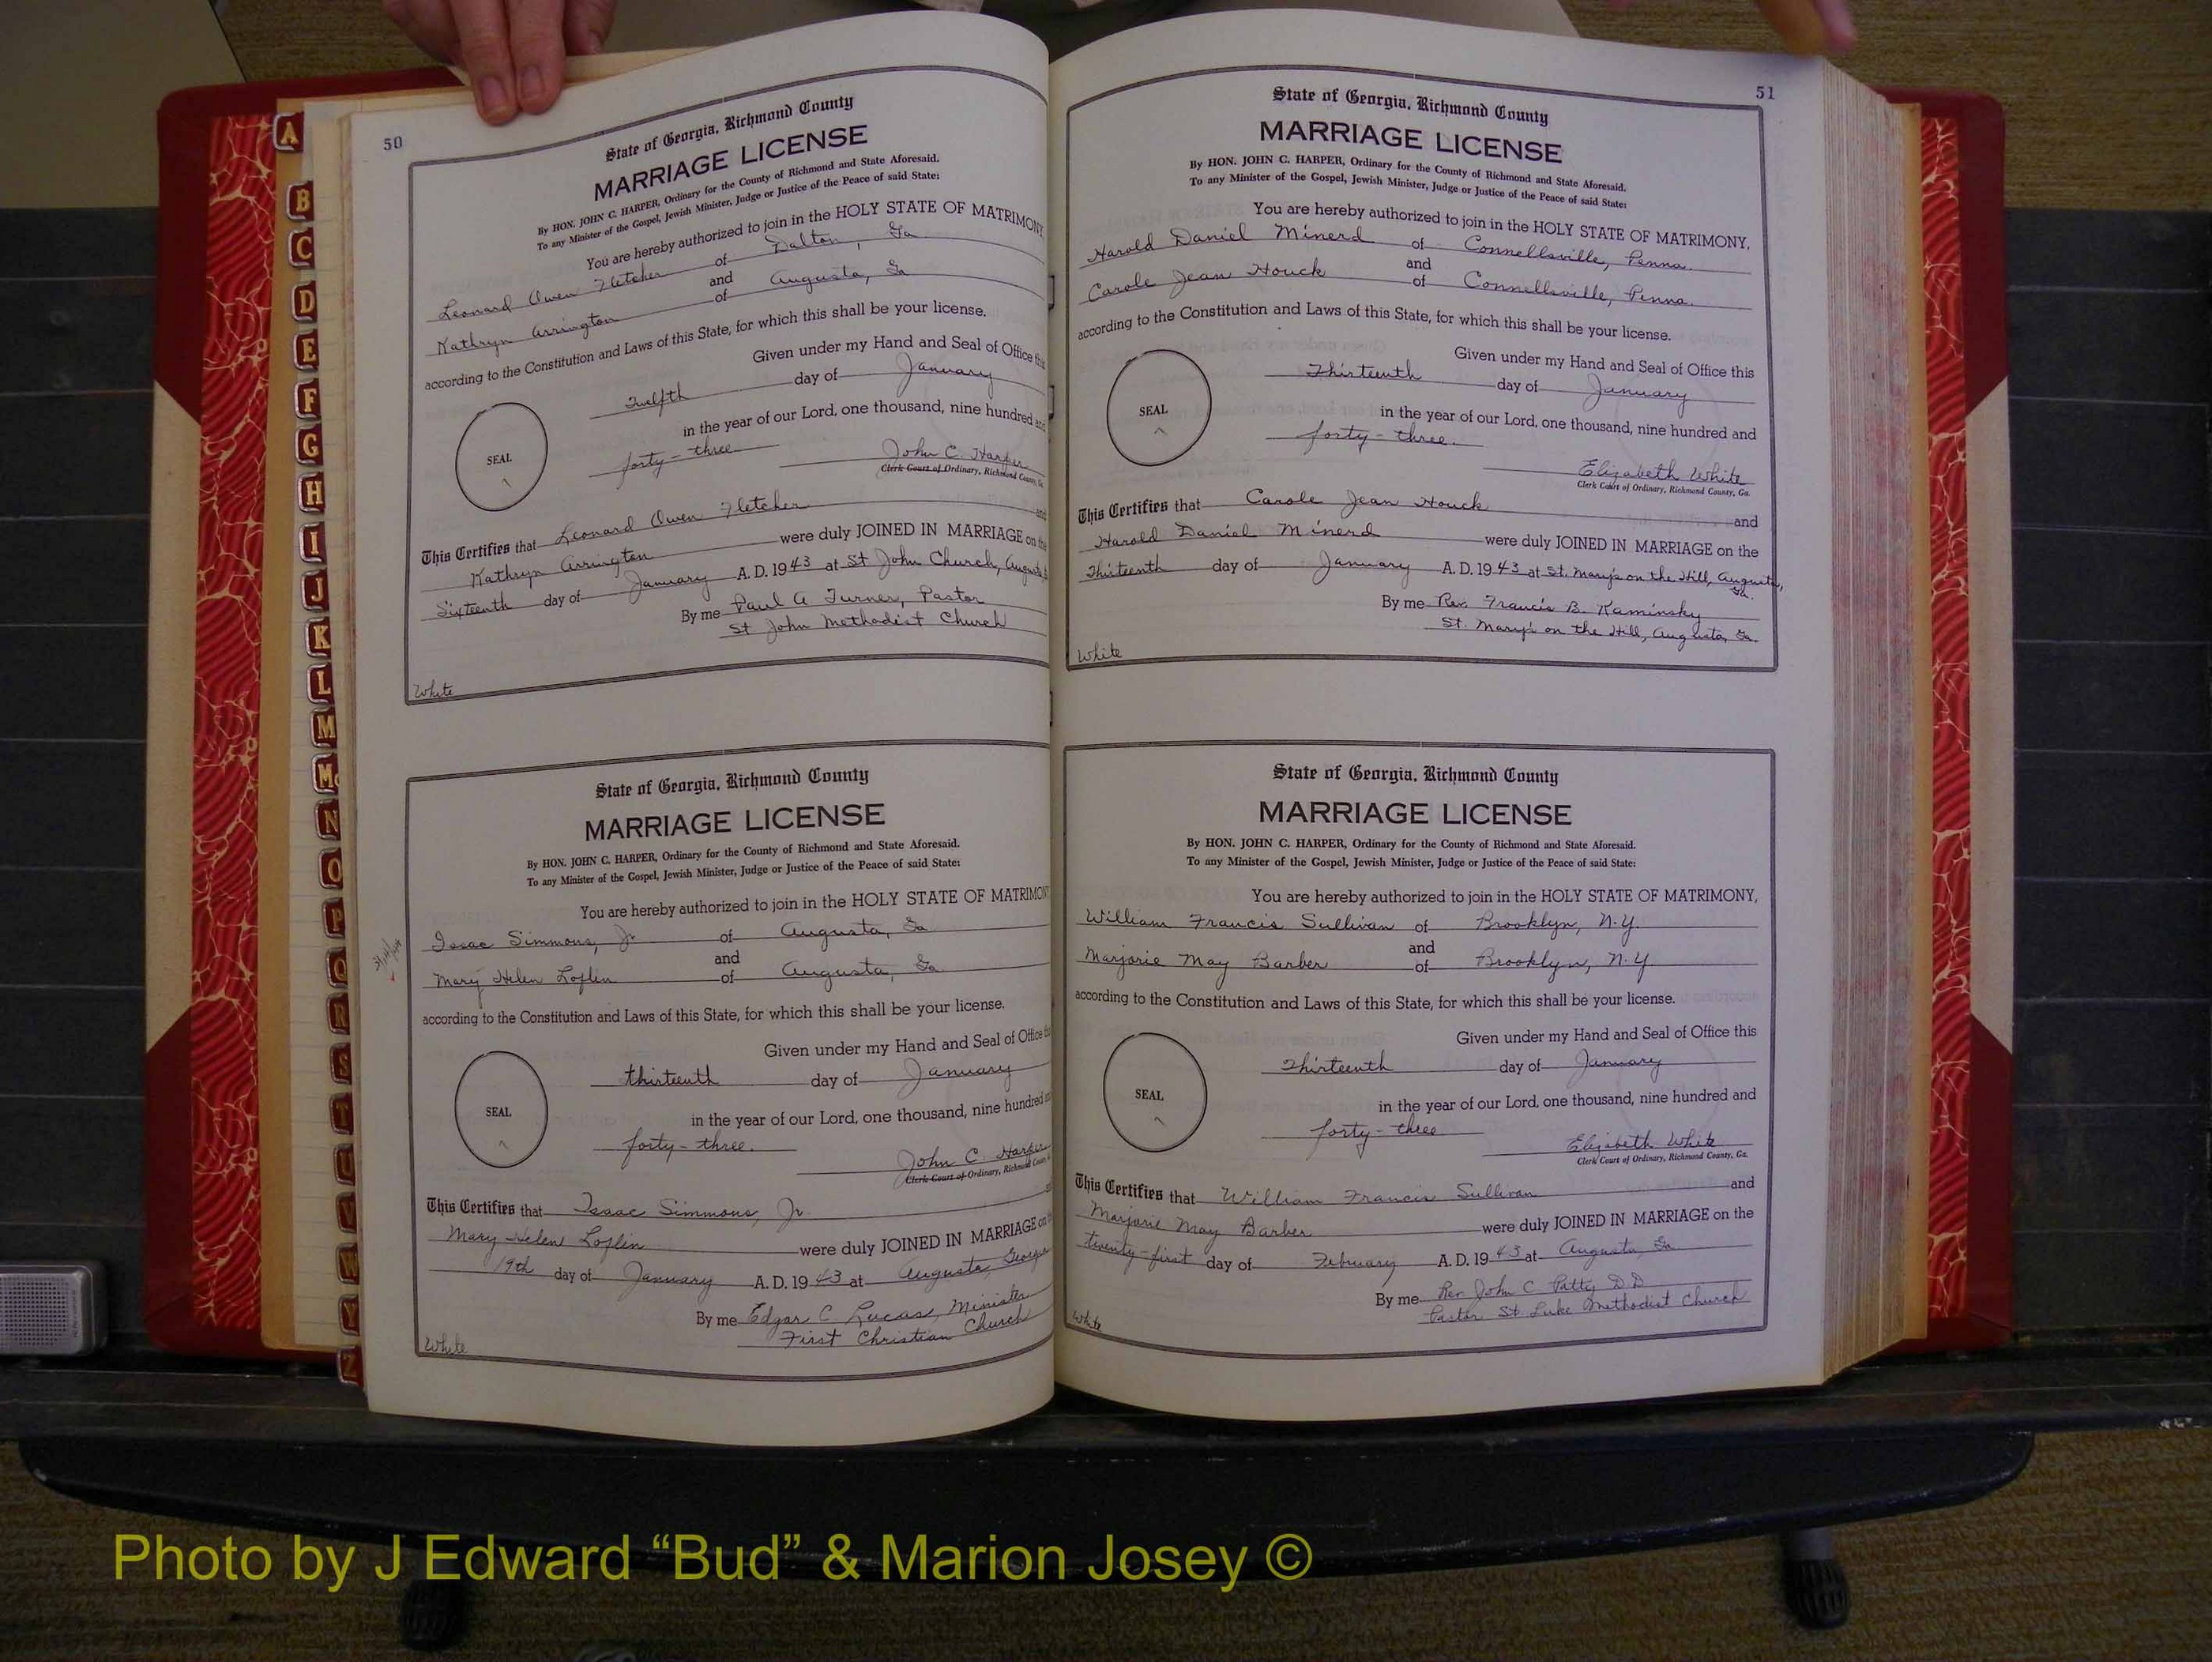 A
B
C
D
E
F
G
H
I
J
K
L
M
Mc
N
O
P
Q
R
S
T
U
V
W
Y
Z
50
State of Georgia, Richmond County
MARRIAGE LICENSE
By HON. JOHN C. HARPER, Ordinary for the County of Richmond and State Aforesaid.
To any Minister of the Gospel, Jewish Minister, Judge or Justice of the Peace of said State:
You are hereby authorized to join in the HOLY STATE OF MATRIMONY,
Leonard Owen Fletcher of Dalton, Ga
and
Kathryn Arrington of Augusta, Ga
according to the Constitution and Laws of this State, for which this shall be your license.
Given under my Hand and Seal of Office this
Twelfth day of January
in the year of our Lord, one thousand, nine hundred and
SEAL
forty-three
John C. Harper
Clerk Court of Ordinary, Richmond County, Ga.
This Certifies that Leonard Owen Fletcher and
Kathryn Arrington were duly JOINED IN MARRIAGE on the
Sixteenth day of January A. D. 1943 at St John Church, Augusta
By me Paul A Turner, Pastor
St John Methodist Church
White
State of Georgia, Richmond County
MARRIAGE LICENSE
By HON. JOHN C. HARPER, Ordinary for the County of Richmond and State Aforesaid.
To any Minister of the Gospel, Jewish Minister, Judge or Justice of the Peace of said State:
You are hereby authorized to join in the HOLY STATE OF MATRIMONY
Isaac Simmons, Jr of Augusta, Ga
and
Mary Helen Loflin of Augusta, Ga
according to the Constitution and Laws of this State, for which this shall be your license.
Given under my Hand and Seal of Office
thirteenth day of January
in the year of our Lord, one thousand, nine hundred
SEAL
forty-three.
John C. Harper
Clerk Court of Ordinary, Richmond County
This Certifies that Isaac Simmons, Jr.
Mary Helen Loflin were duly JOINED IN MARRIAGE on
19th day of January A. D. 1943 at Augusta, Georgia
By me Edgar C Lucas, Minister
First Christian Church
White
51
State of Georgia, Richmond County
MARRIAGE LICENSE
By HON. JOHN C. HARPER, Ordinary for the County of Richmond and State Aforesaid.
To any Minister of the Gospel, Jewish Minister, Judge or Justice of the Peace of said State:
You are hereby authorized to join in the HOLY STATE OF MATRIMONY,
Harold Daniel Minerd of Connellsville, Penna.
and
Carole Jean Houck of Connellsville, Penna.
according to the Constitution and Laws of this State, for which this shall be your license.
Given under my Hand and Seal of Office this
Thirteenth day of January
SEAL
in the year of our Lord, one thousand, nine hundred and
forty-three.
Elizabeth White
Clerk Court of Ordinary, Richmond County, Ga.
This Certifies that Carole Jean Houck and
Harold Daniel Minerd were duly JOINED IN MARRIAGE on the
Thirteenth day of January A. D. 1943 at St. Mary's on the Hill, Augusta,
Ga.
By me Rev. Francis B. Kaminsky
St. Mary's on the Hill, Augusta, Ga.
White
State of Georgia, Richmond County
MARRIAGE LICENSE
By HON. JOHN C. HARPER, Ordinary for the County of Richmond and State Aforesaid.
To any Minister of the Gospel, Jewish Minister, Judge or Justice of the Peace of said State:
You are hereby authorized to join in the HOLY STATE OF MATRIMONY,
William Francis Sullivan of Brooklyn, N.Y.
and
Marjorie May Barber of Brooklyn, N.Y.
according to the Constitution and Laws of this State, for which this shall be your license.
Given under my Hand and Seal of Office this
Thirteenth day of January
SEAL
in the year of our Lord, one thousand, nine hundred and
forty-three
Elizabeth White
Clerk Court of Ordinary, Richmond County, Ga.
This Certifies that William Francis Sullivan and
Marjorie May Barber were duly JOINED IN MARRIAGE on the
twenty-first day of February A. D. 1943 at Augusta, Ga.
By me Rev John C Patty D.D
Pastor St. Luke Methodist Church
White
Photo by J Edward “Bud” & Marion Josey ©